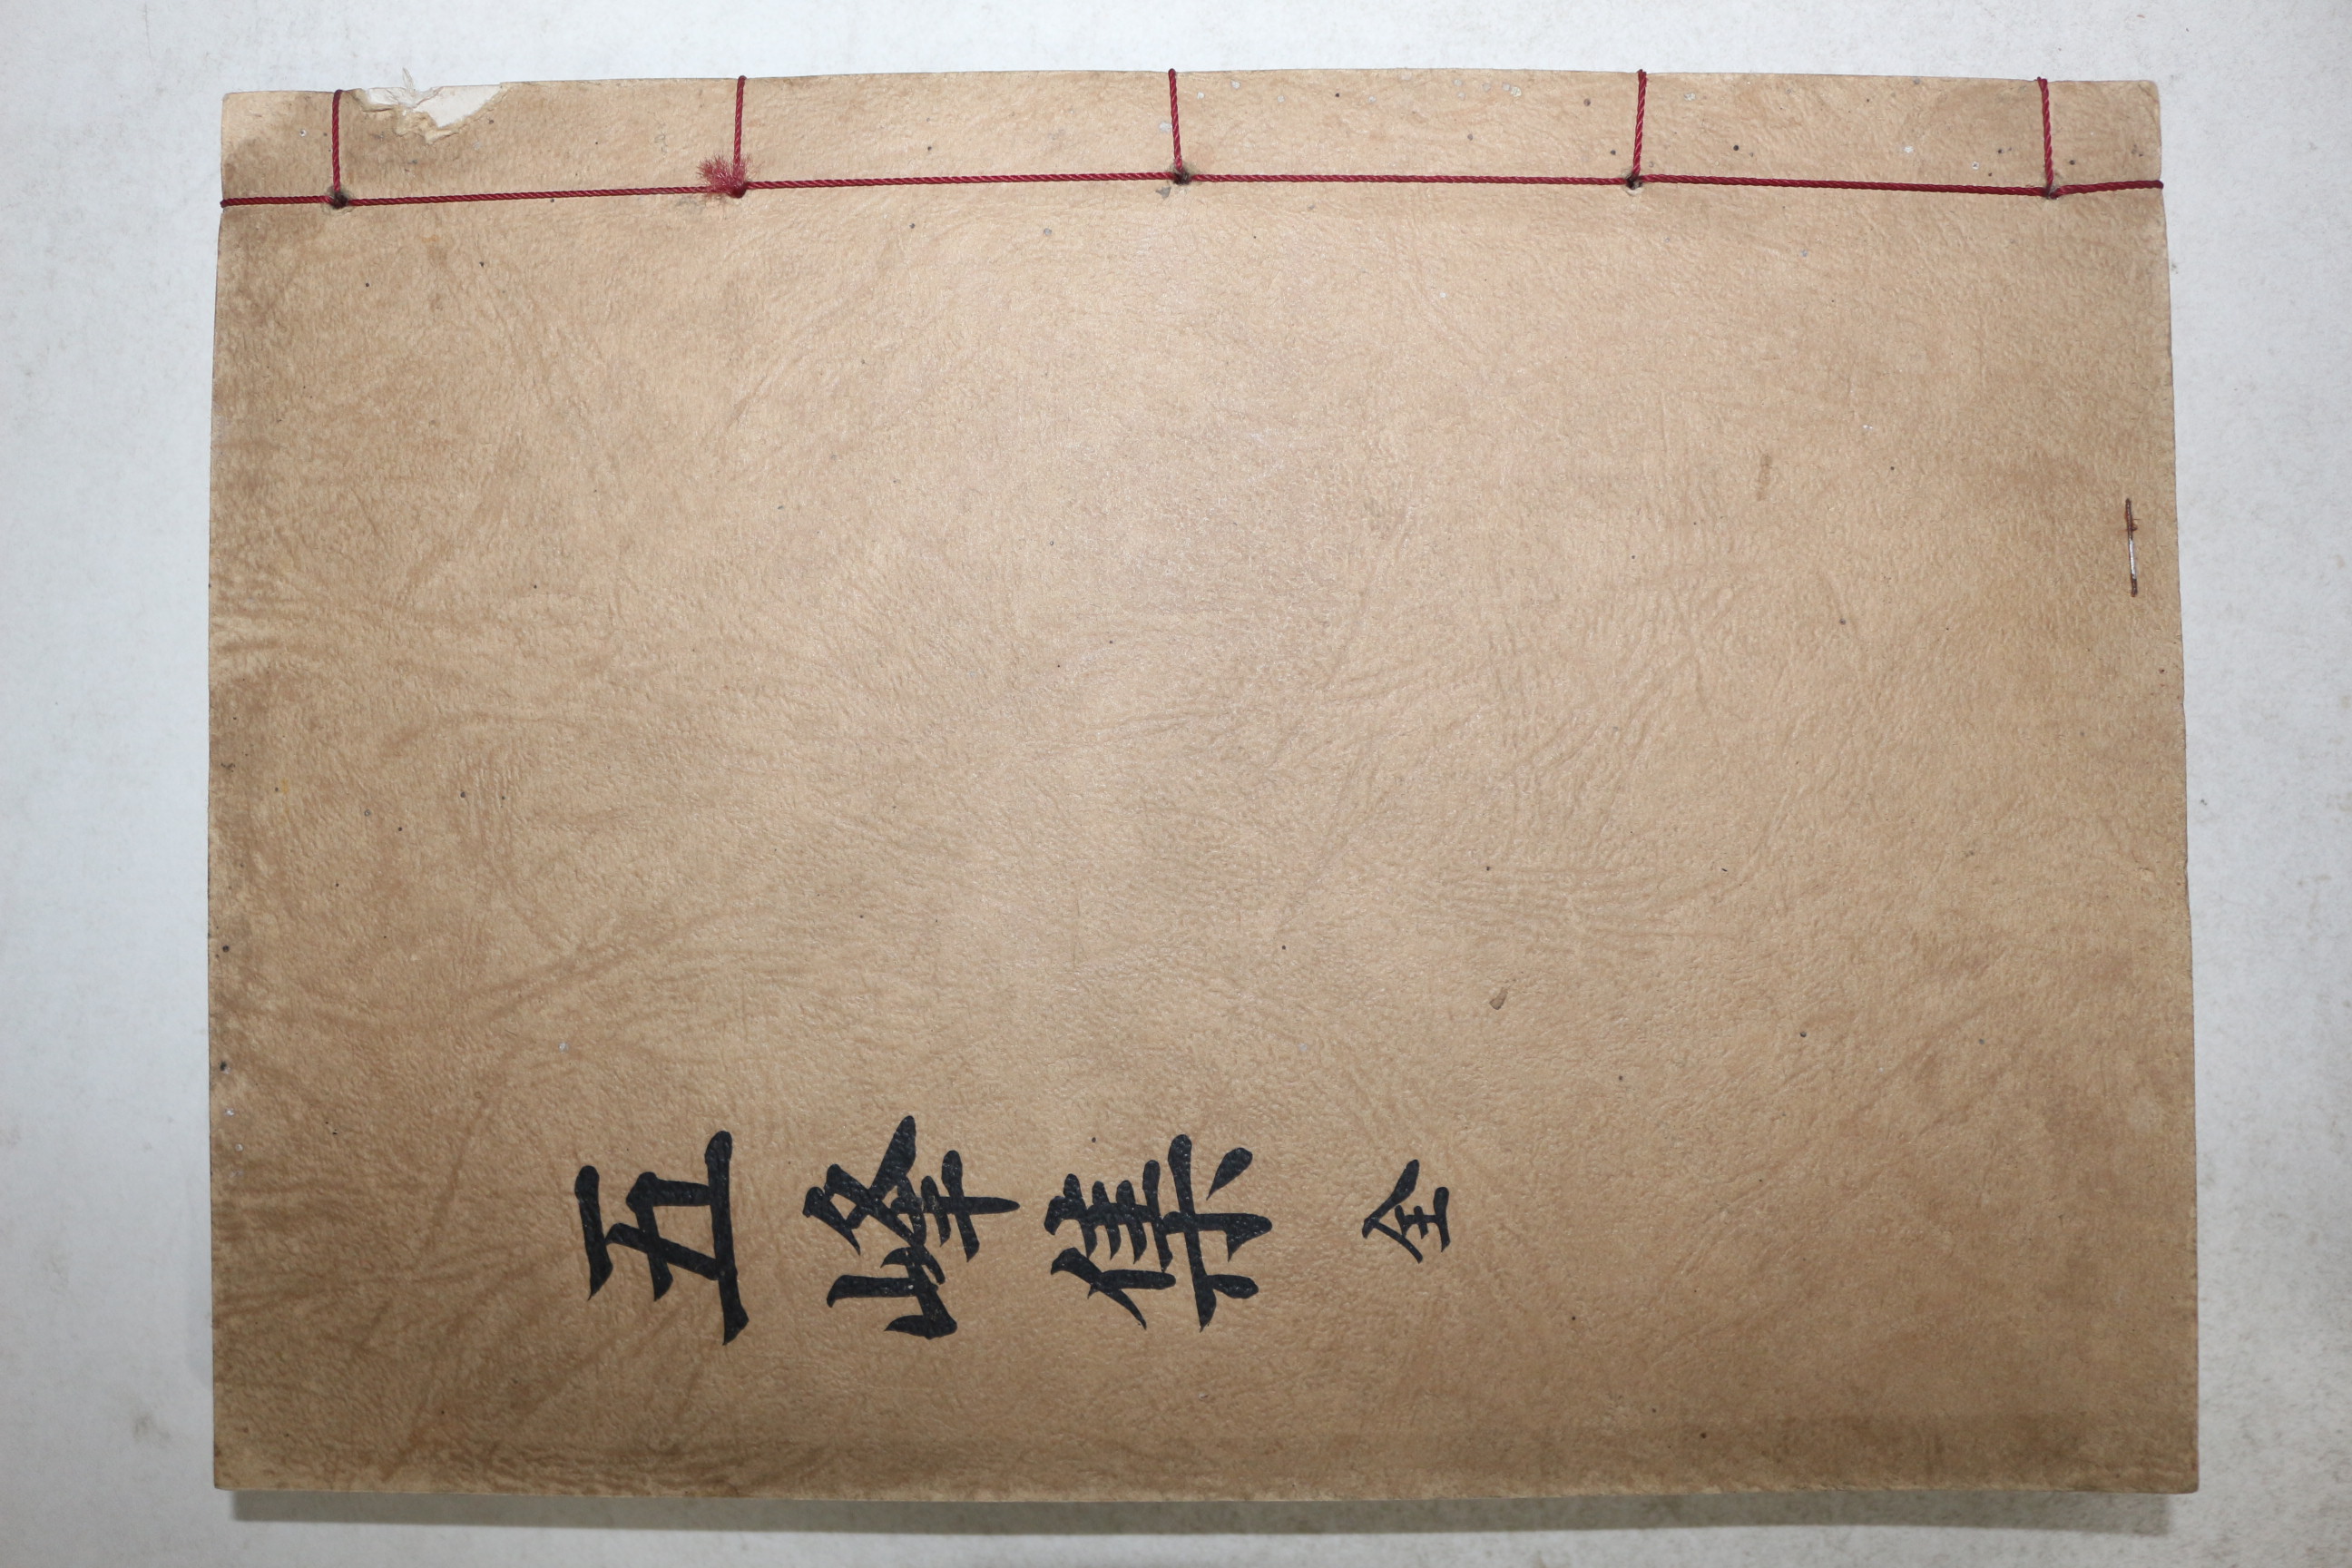 五峰集 全